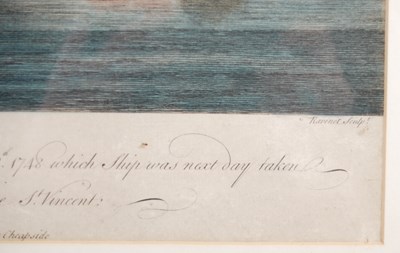 Ravenet Sculpt.
1748 which Ship was next day taken
St. Vincent:
Cheapside